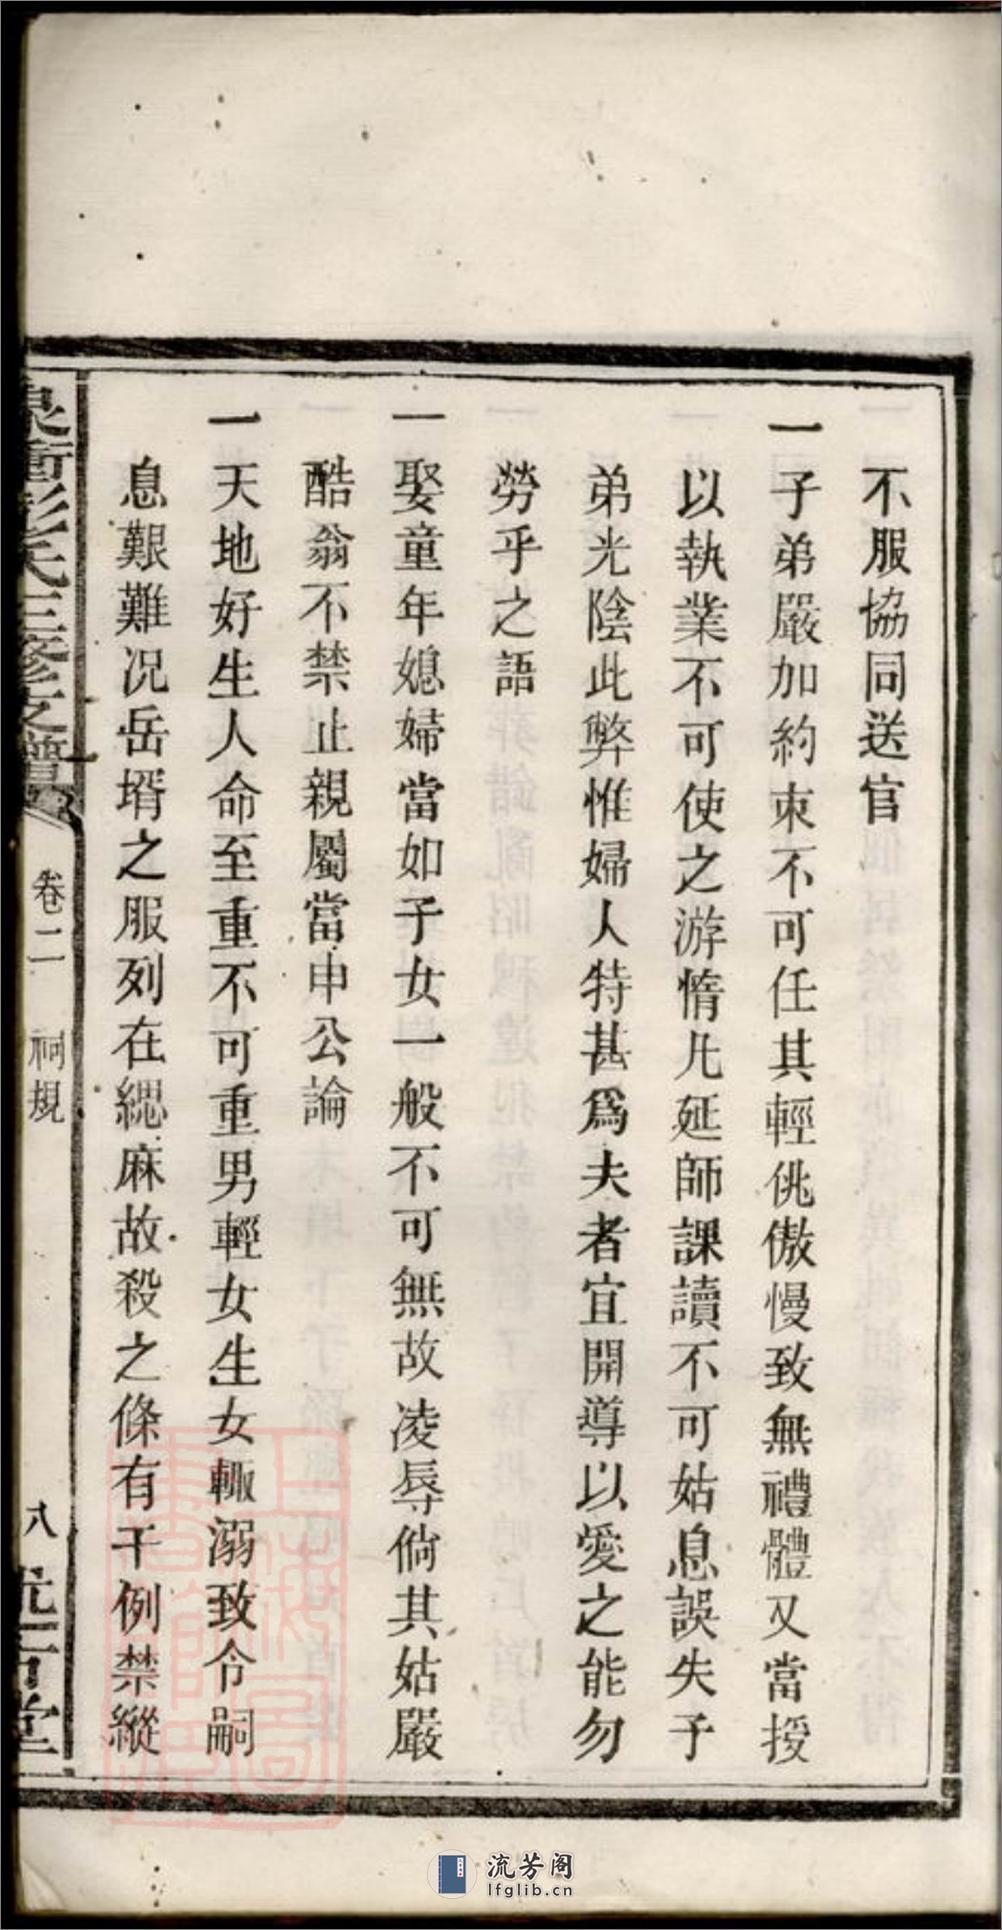 不服協同送官
一子弟嚴加約束不可任其輕佻傲慢致無禮體又當授
以執業不可使之游惰凡延師課讀不可姑息誤失子
弟光陰此弊惟婦人特甚爲夫者宜開導以愛之能勿
勞乎之語
一娶童年媳婦當如子女一般不可無故凌辱倘其姑嚴
酷翁不禁止親屬當申公論
一天地好生人命至重不可重男輕女生女輙溺致令嗣
息艱難况岳壻之服列在緦麻故殺之條有干例禁縱
衝彭氏三修支譜
卷二 祠規
八
堂
上海圖書館藏
流芳阁
lfglib.cn